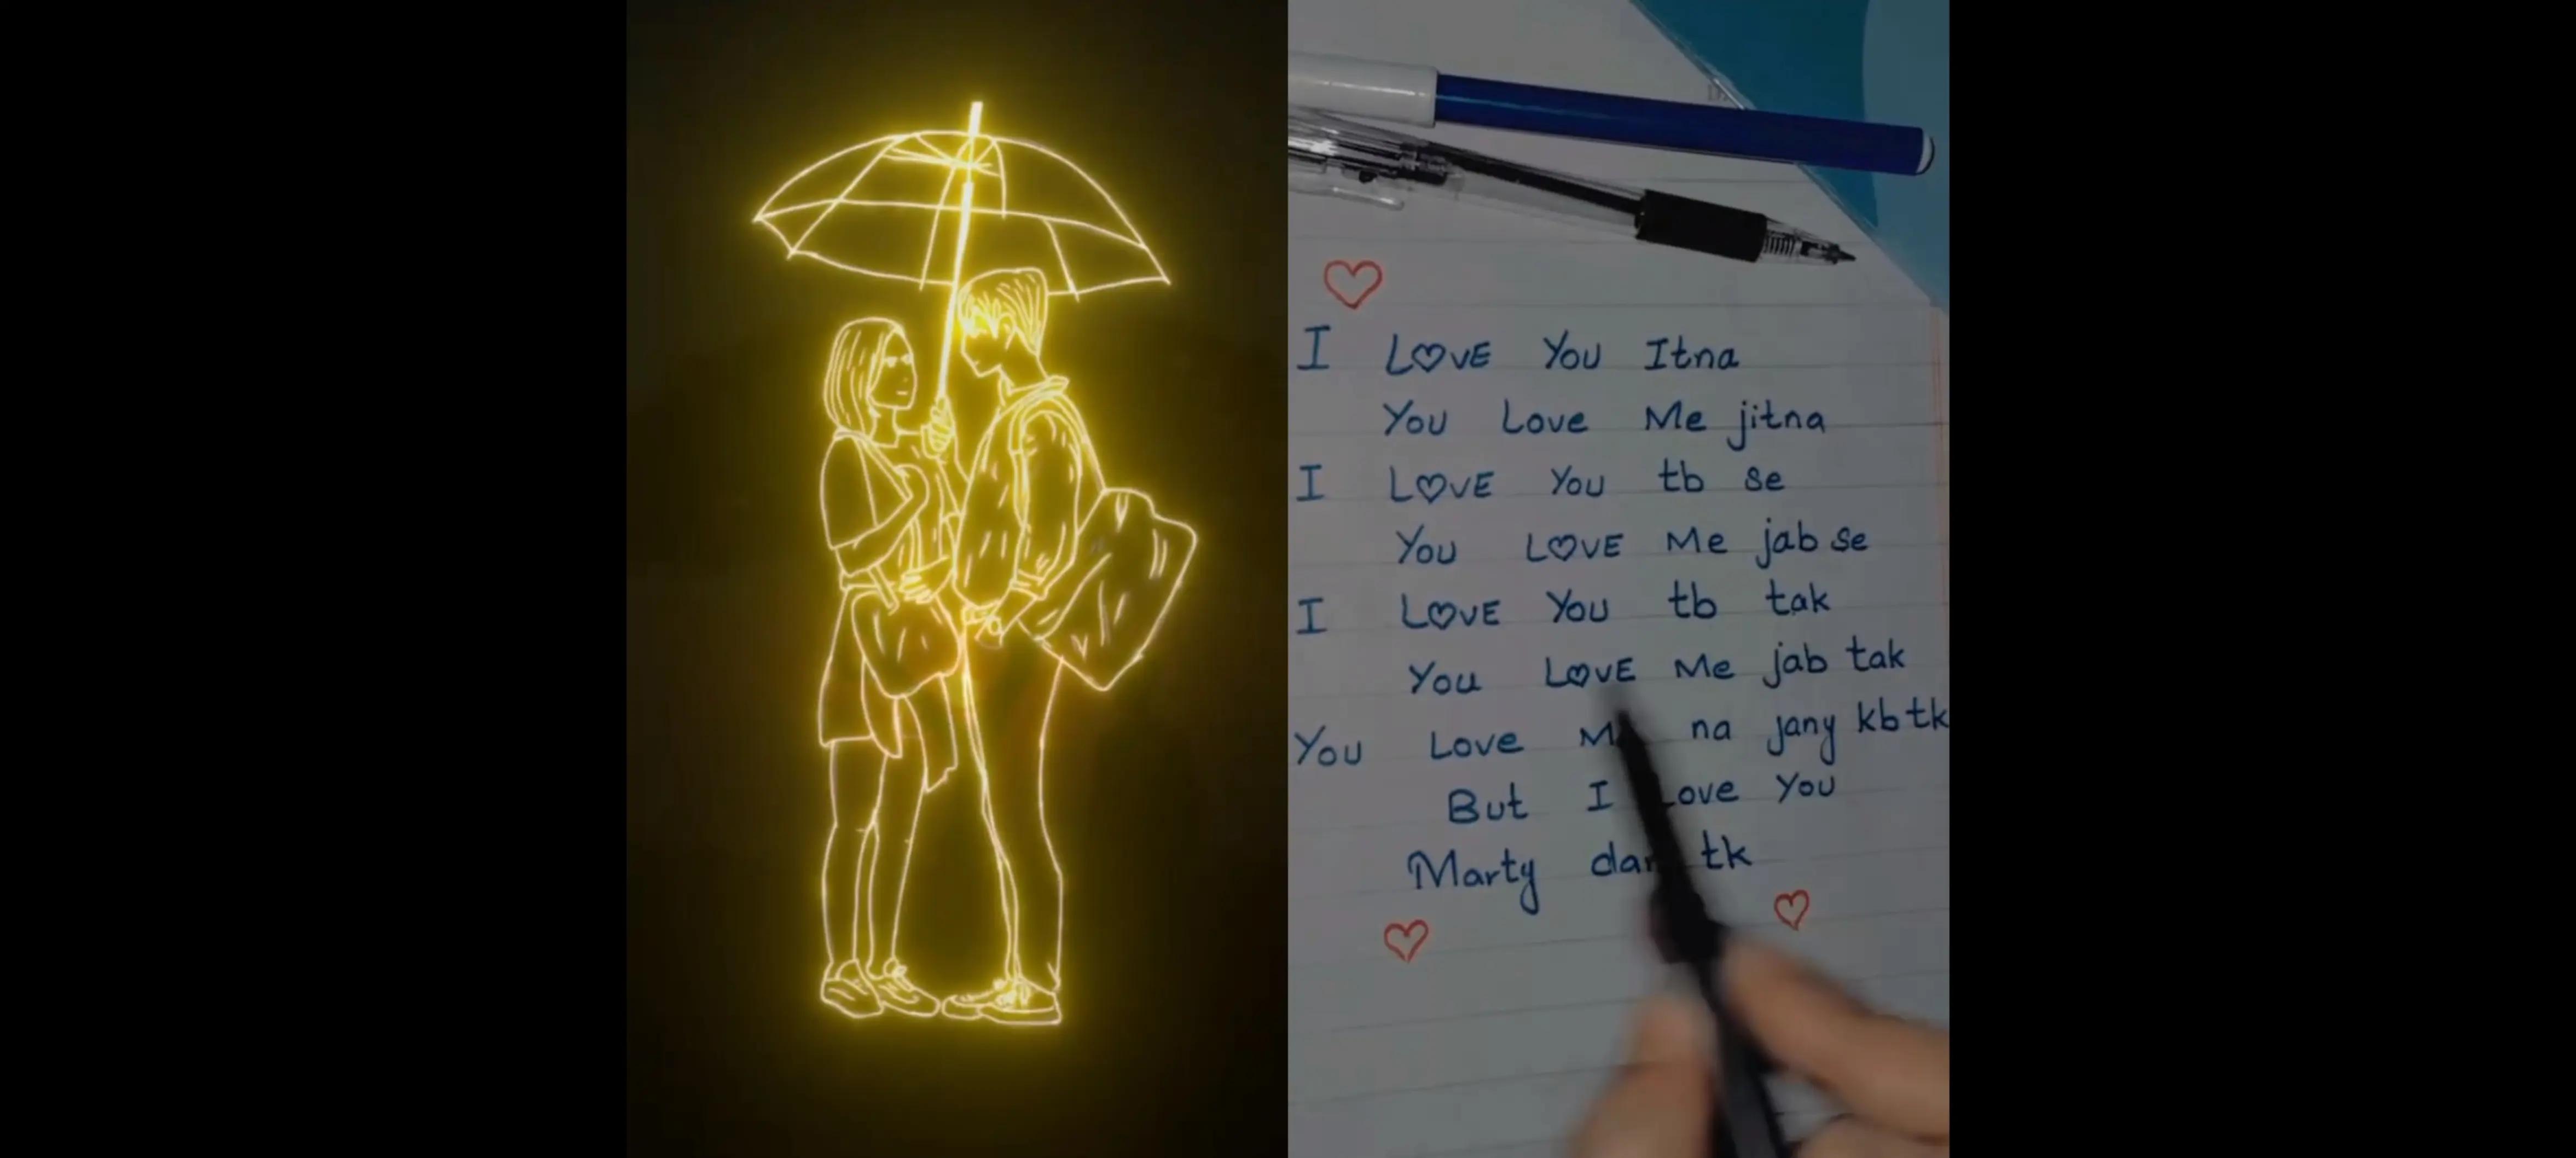 I LOVE You Itna
You Love Me jitna
I LOVE You tb se
You LOVE Me jab se
I LOVE You tb tak
You LOVE Me jab tak
You Love na jany kb tk
But I Love You
Marty tk